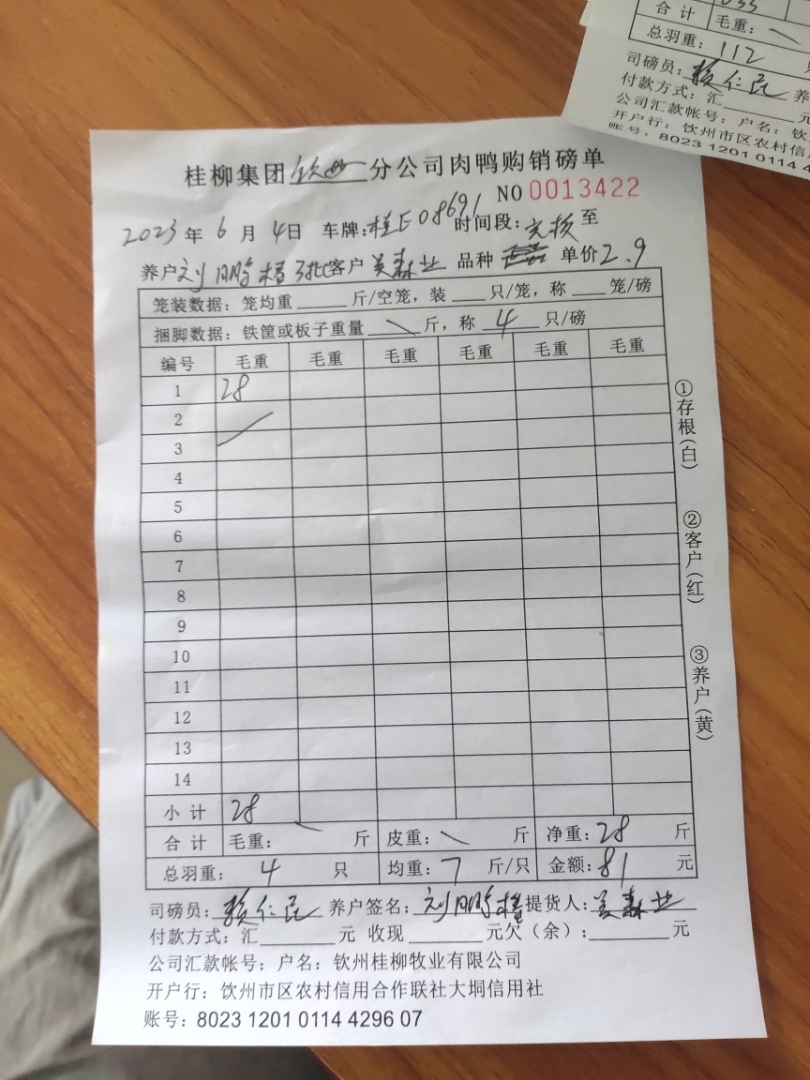 033
合计 毛重：
总羽重：112
司磅员：赖仁昆 养
付款方式：汇 元
公司汇款帐号：户名：钦
开户行：钦州市区农村信
账号：8023 1201 0114 4
桂柳集团钦州分公司肉鸭购销磅单
NO 0013422
2023年6月4日 车牌：桂E08691 时间段： 至
养户刘鹏 客户吴森业 品种 单价2.9
笼装数据：笼均重 斤/空笼，装 只/笼，称 笼/磅
捆脚数据：铁筐或板子重量 \ 斤，称 4 只/磅
编号 毛重 毛重 毛重 毛重 毛重 毛重
1 28
2
3
4
5
6
7
8
9
10
11
12
13
14
小计 28
合计 毛重：\ 斤 皮重：\ 斤 净重：28 斤
总羽重：4 只 均重：7 斤/只 金额：81 元
司磅员：赖仁昆 养户签名：刘鹏 提货人：吴森业
付款方式：汇 元 收现 元欠（余）： 元
公司汇款帐号：户名：钦州桂柳牧业有限公司
开户行：钦州市区农村信用合作联社大垌信用社
账号：8023 1201 0114 4296 07
①存根（白）
②客户（红）
③养户（黄）